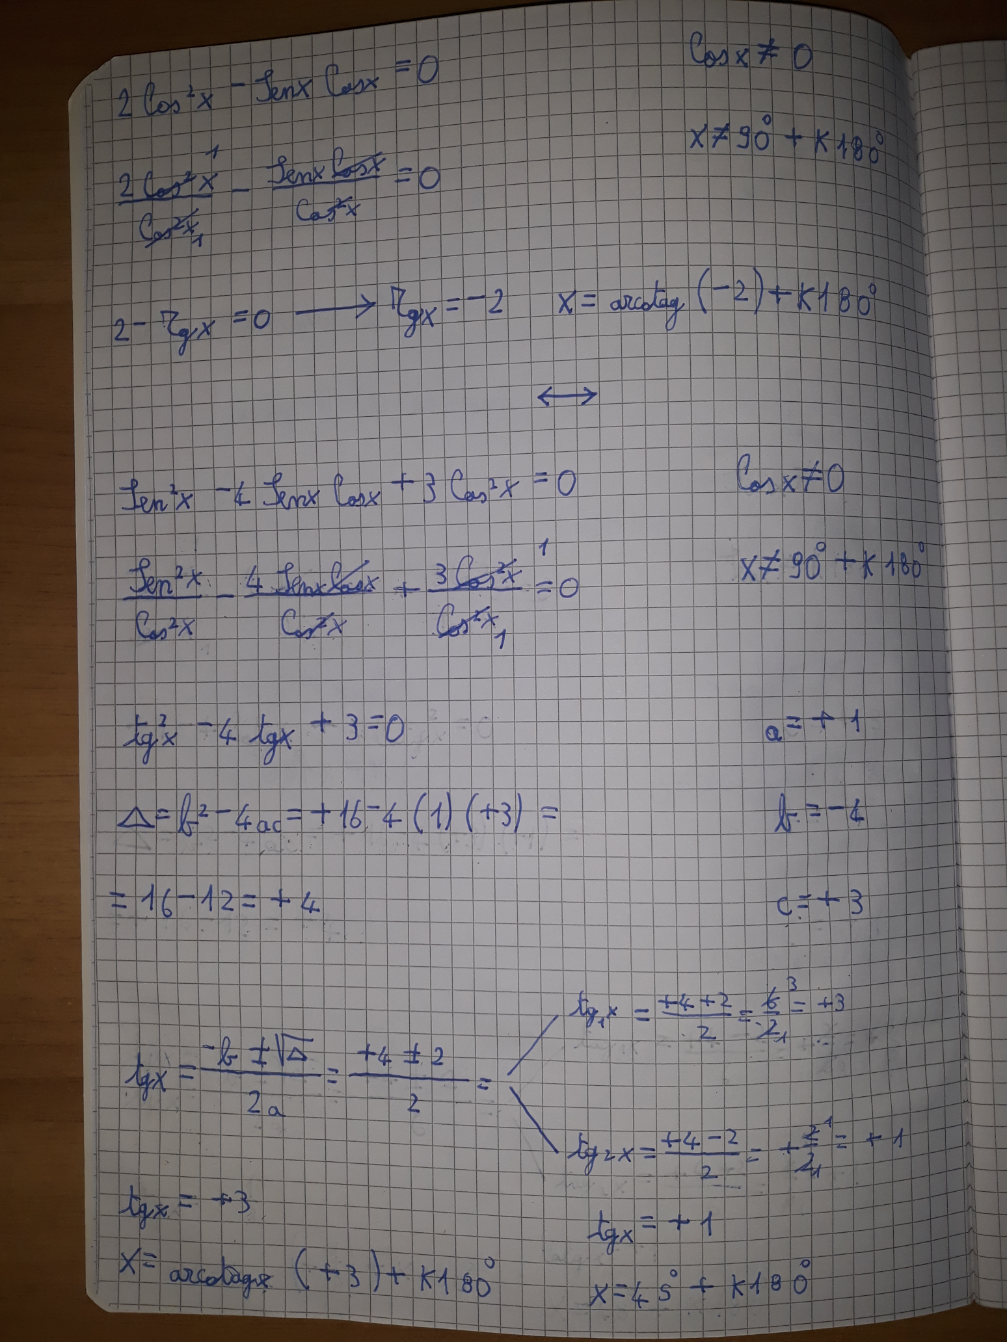 2 Cos²x - Senx Cosx = 0    Cosx ≠ 0
x ≠ 90° + K180°
2 Cos²x / Cos²x - Senx Cosx / Cos²x = 0
2 - Tgx = 0 → Tgx = -2    x = arcotag (-2) + K180°
↔
Sen²x - 4 Senx Cosx + 3 Cos²x = 0    Cosx ≠ 0
Sen²x / Cos²x - 4 Senx Cosx / Cos²x + 3 Cos²x / Cos²x = 0    x ≠ 90° + K180°
tg²x - 4 tgx + 3 = 0    a = + 1
Δ = b² - 4ac = +16 - 4 (1) (+3) =    b = -4
= 16 - 12 = + 4    c = + 3
tg₁x = +4 + 2 / 2 = 6 / 2 = +3
tgx = -b ± √Δ / 2a = +4 ± 2 / 2 =
tg₂x = +4 - 2 / 2 = + 2 / 2 = + 1
tgx = +3    tgx = + 1
x = arcotagx (+3) + K180°    x = 45° + K180°